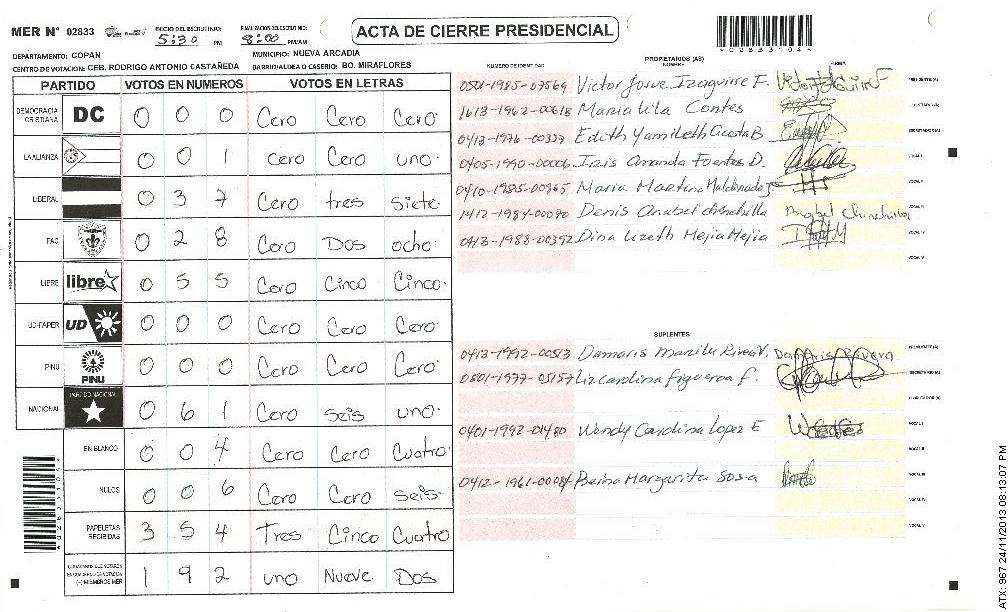 MER N° 02833
INICIO DEL ESCRUTINIO: 5:30 PM
FINALIZACION DEL ESCRUTINIO: 8:00 PM/AM
ACTA DE CIERRE PRESIDENCIAL
DEPARTAMENTO: COPAN
MUNICIPIO: NUEVA ARCADIA
CENTRO DE VOTACION: CEB. RODRIGO ANTONIO CASTAÑEDA
BARRIO/ALDEA O CASERIO: BO. MIRAFLORES
PARTIDO VOTOS EN NUMEROS VOTOS EN LETRAS
DEMOCRACIA CRISTIANA DC 0 0 0 Cero Cero Cero
LA ALIANZA 0 0 1 Cero Cero uno
LIBERAL 0 3 7 Cero tres siete
PAC 0 2 8 Cero Dos ocho
LIBRE libre 0 5 5 Cero Cinco Cinco
UD-FAPER UD 0 0 0 Cero Cero Cero
PINU PINU 0 0 0 Cero Cero Cero
NACIONAL PARTIDO NACIONAL 0 6 1 Cero seis uno
EN BLANCO 0 0 4 Cero Cero Cuatro
NULOS 0 0 6 Cero Cero seis
PAPELETAS RECIBIDAS 3 5 4 Tres Cinco Cuatro
(+) MIEMBROS MER 1 9 2 uno Nueve Dos
PROPIETARIOS (AS)
NUMERO DE IDENTIDAD NOMBRE FIRMA
0501-1985-07569 Victor Josue Izaguirre F.
1613-1962-00618 Maria Lila Contes
0413-1976-00337 Edith Yamileth Acosta B
0405-1990-00006 Iris Amanda Fuentes D.
0410-1985-00865 Maria Martina Maldonado
1412-1984-00090 Denis Anabel Chinchilla Anabel Chinchilla
0413-1988-00392 Dina Lizeth Mejia Mejia
SUPLENTES
0413-1992-00513 Damaris Marilu Rivera V. Damaris Rivera
0801-1977-05157 Liz Carolina Figueroa F.
0401-1992-01480 Wendy Carolina Lopez E
0412-1961-00084 Reina Margarita Sosa
ATX: 967 24/11/2013 08:13:07 PM